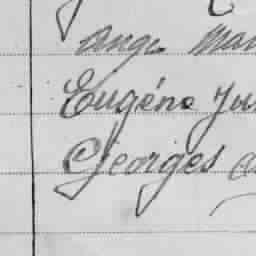 Ange Mar
Eugéne Ju
Georges